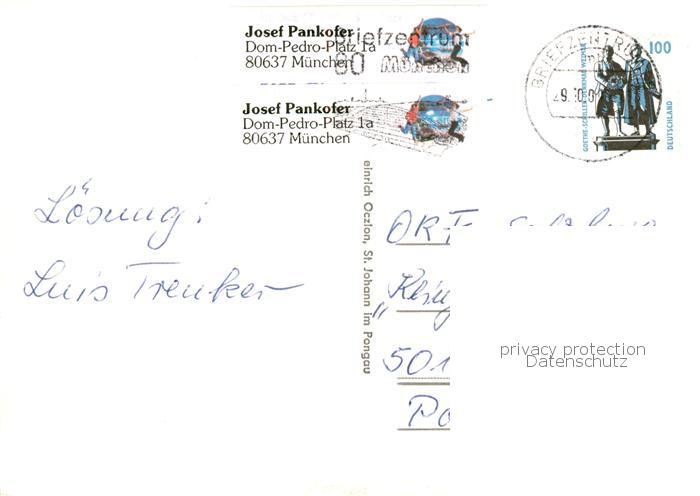 Josef Pankofer
Dom-Pedro-Platz 1a
80637 München
Briefzentrum
80 München
Josef Pankofer
Dom-Pedro-Platz 1a
80637 München
BRIEFZENTRUM
100
GOETHE-SCHILLER-DENKMAL WEIMAR
DEUTSCHLAND
einrich Oczlon, St. Johann im Pongau
Lösung:
Luis Trenker
ORF
"Kling
501
Po
privacy protection
Datenschutz